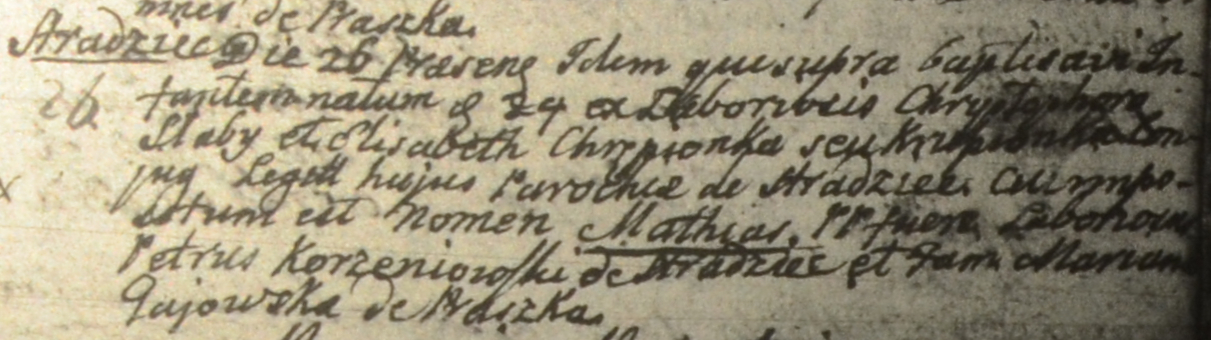 mnes de Praszka.
Stradziec Die 26 Præsens Idem qui supra baptisavi In-
26 fantem natum d 24 ex Laboriosis Chrystophoro
Slaby et Elisabeth Chrypionka seu Krupionka Con-
jug Legitt hujus Parochiæ de Stradziec. Cui impo-
situm est Nomen Mathias. PP fuere Laboriosus
Petrus Korzeniowski de Stradziec et Fam Mariana
Gajowska de Praszka.